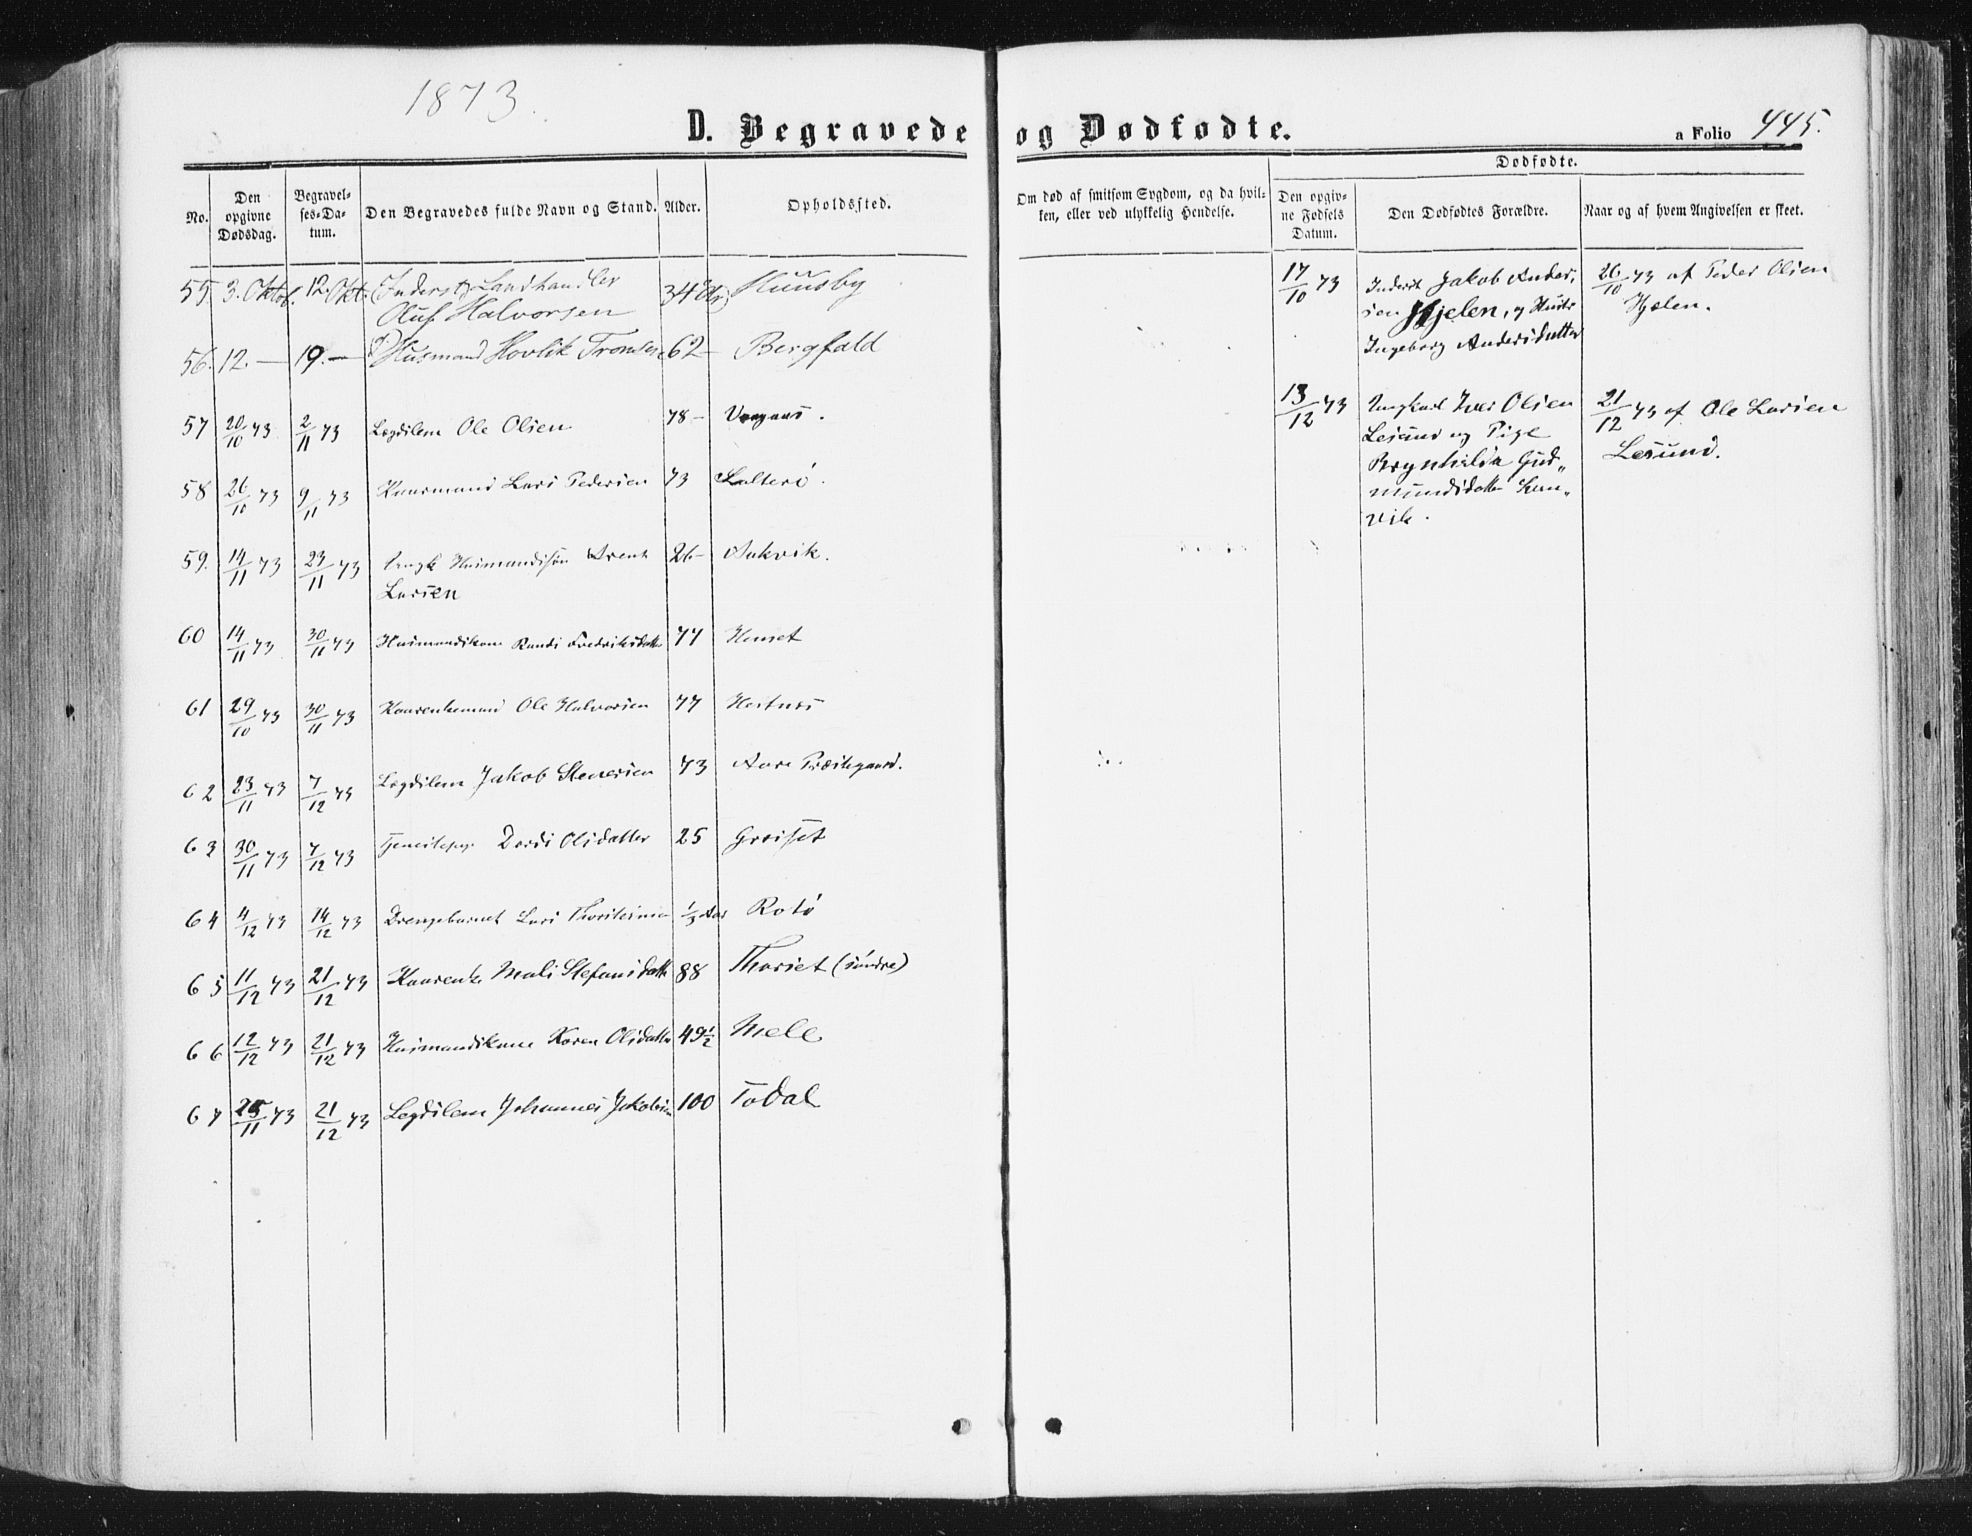 1873.
D. Begravede og Dødfødte.
a Folio 445.
No.
Den opgivne Dødsdag.
Begravelses-Datum.
Den Begravedes fulde Navn og Stand.
Alder.
Opholdssted.
Om død af smitsom Sygdom, og da hvilken, eller ved ulykkelig Hendelse.
Dødfødte.
Den opgivne Fødsels Datum.
Den Dødfødtes Forældre.
Naar og af hvem Angivelsen er skeet.
55. 3. Oktob. 12. Okt. Inderst og Landhandler 34 Aar
Oluf Halvorsen
56. 12. — 19. — Husmand Hovlik 62 — Bergfald
57 20/10 73 2/11 73 Lægdslem Ole Olsen 78 —
58 26/10 73 9/11 73 Kaarmand Lars Pedersen 73
59. 14/11 73 23/11 73 Ungk Husmandssøn 26 — Aakvik.
Larsen
60 14/11 73 30/11 73 Husmandskone Randi Fredriksdatter 77
61 29/10 73 30/11 73 Kaarenkemand Ole Halvorsen 77 Hestnes
62 23/11 73 7/12 73 Lægdslem Jakob Stenersen 73 Aure Præstegaard.
63 30/11 73 7/12 73 Tjenestepge Dordi Olsdatter 25
64 4/12 73 14/12 73 Drengebarnet Lars 1/3 Aar Rotø
65 11/12 73 21/12 73 Kaarenke Mali Stefansdatter 88 Thorset (søndre)
66 12/12 73 21/12 73 Husmandskone Karen Olsdatter 49 1/2 Mele
67 25/11 73 21/12 73 Lægdslem Johannes Jakobsen 100 Todal
17/10 73 Inderst Jakob Anders- 26/10 73 af Peder Olsen
sen Hjelen, og Hustr Hjelen.
Ingeborg Andersdatter
13/12 73 Ungkarl Iver Olsen 21/12 73 af Ole Larsen
Lesund og Pige Lesund.
Brynhilda Gud„
mundsdatter
vik.